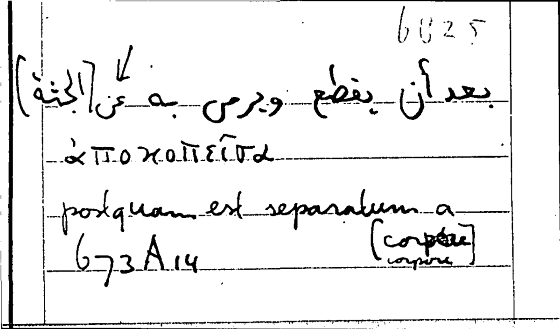 6025
بعد أن يقطع ويرمى به عن [الجثة]
ἀποκοπεῖσα
postquam est separatum a
[corpore]
corpore
673A14